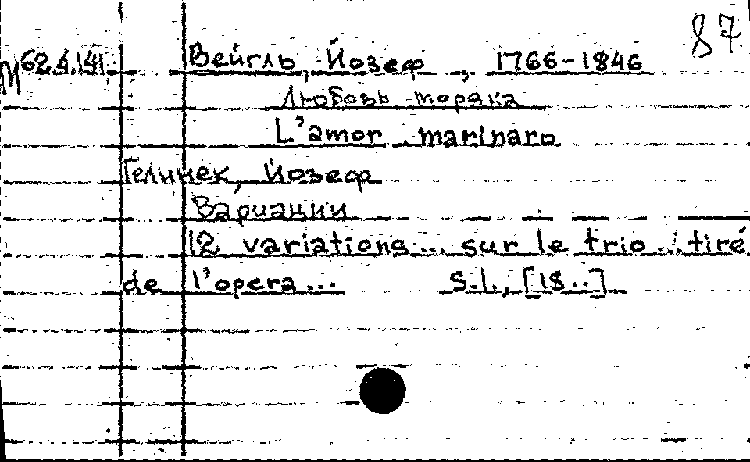 87
М62.4.141 Вейгль, Йозеф, 1766-1846
Любовь моряка
L'amor marinaro
Гелинек, Йозеф
Вариации
12 variations... sur le trio : tiré
de l'opera... S.l., [18..]